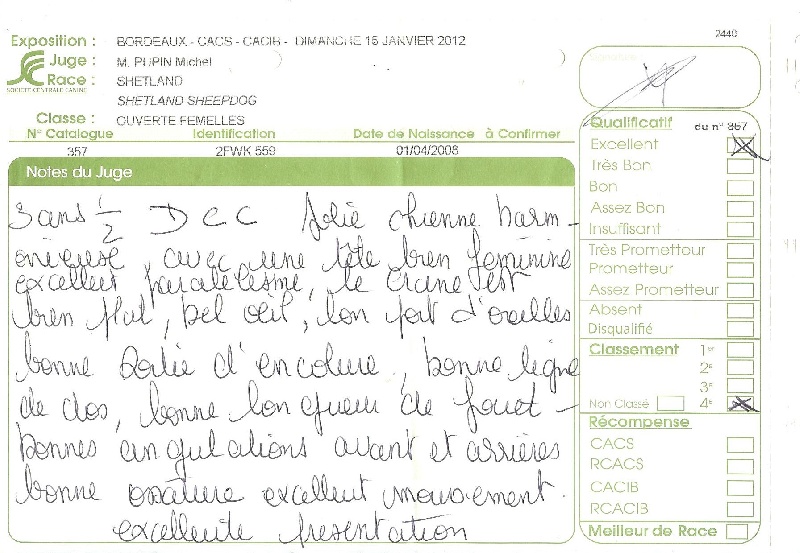 2440
Exposition : BORDEAUX - CACS - CACIB - DIMANCHE 15 JANVIER 2012
Juge : M. PUPIN Michel
Race : SHETLAND
SOCIÉTÉ CENTRALE CANINE
SHETLAND SHEEPDOG
Classe : OUVERTE FEMELLES
N° Catalogue Identification Date de Naissance à Confirmer
357 2FWK 559 01/04/2008
Notes du Juge
3 ans 1/2 DCC Jolie chienne harm-
onieuse, avec une tête bien féminine
excellent parallélisme, le crane est
bien plat, bel oeil, bon port d'oreilles
bonne sortie d'encolure, bonne ligne
de dos, bonne longueur de fouet -
bonnes angulations avant et arrières
bonne ossature excellent mouvement.
excellente présentation
Signature
Qualificatif du n° 357
Excellent
Très Bon
Bon
Assez Bon
Insuffisant
Très Prometteur
Prometteur
Assez Prometteur
Absent
Disqualifié
Classement 1er
2e
3e
Non Classé 4e
Récompense
CACS
RCACS
CACIB
RCACIB
Meilleur de Race